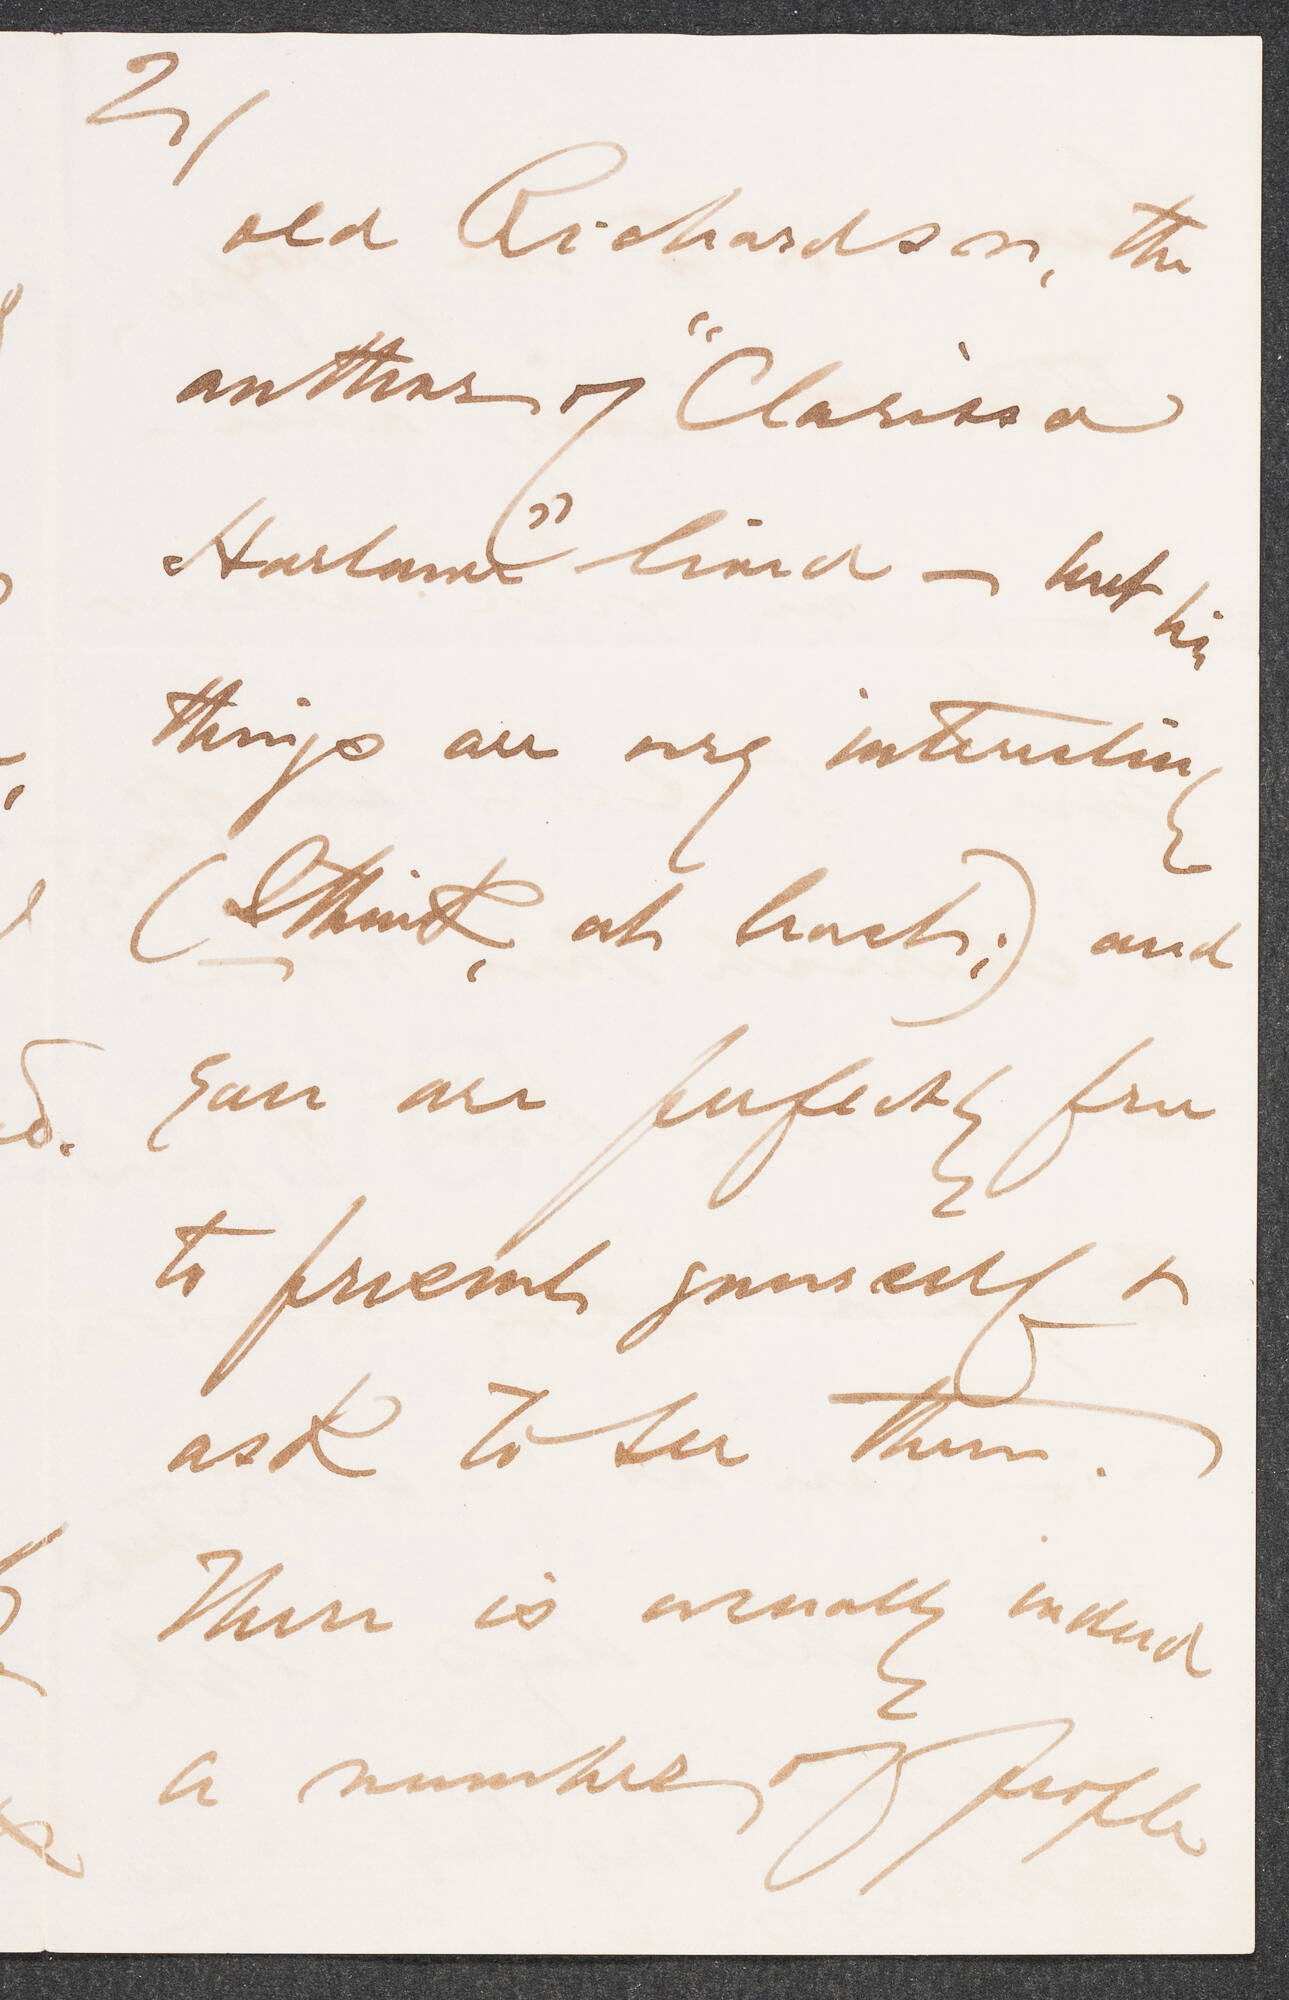 2/
old Richardson, the
author of "Clarissa
Harlowe" lived — but his
things are very interesting
(I think, at least;) and
you are perfectly free
to present yourself &
ask to see them.
There is usually indeed
a number of people